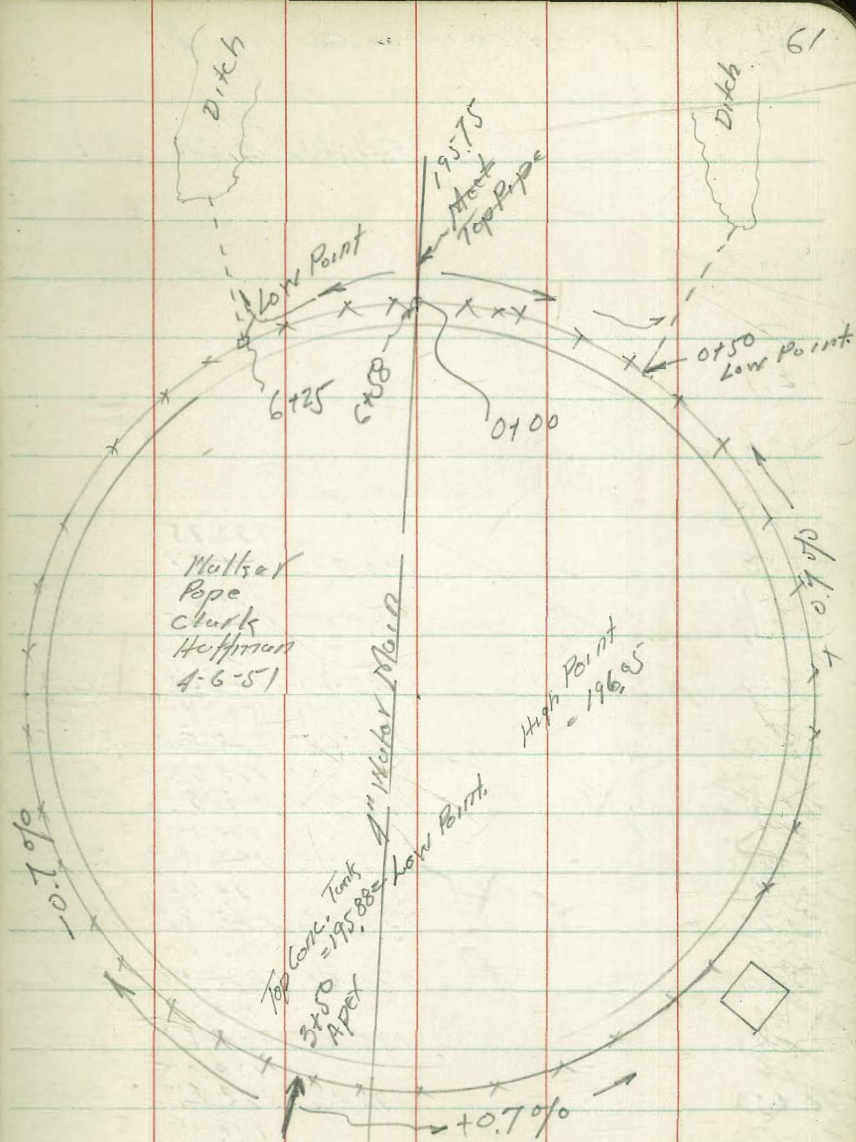 61
Ditch
Ditch
195.75
Meet
Top Pipe
Low Point
0+50
Low Point
6+25
6+58
0+00
Pope
Clark
Hoffman
4-6-51
0.7%
4" Water Main
High Point
= 196.95
-0.7%
Top Conc. Tank
= 195.88 = Low Point
3+50
Apex
+0.7%